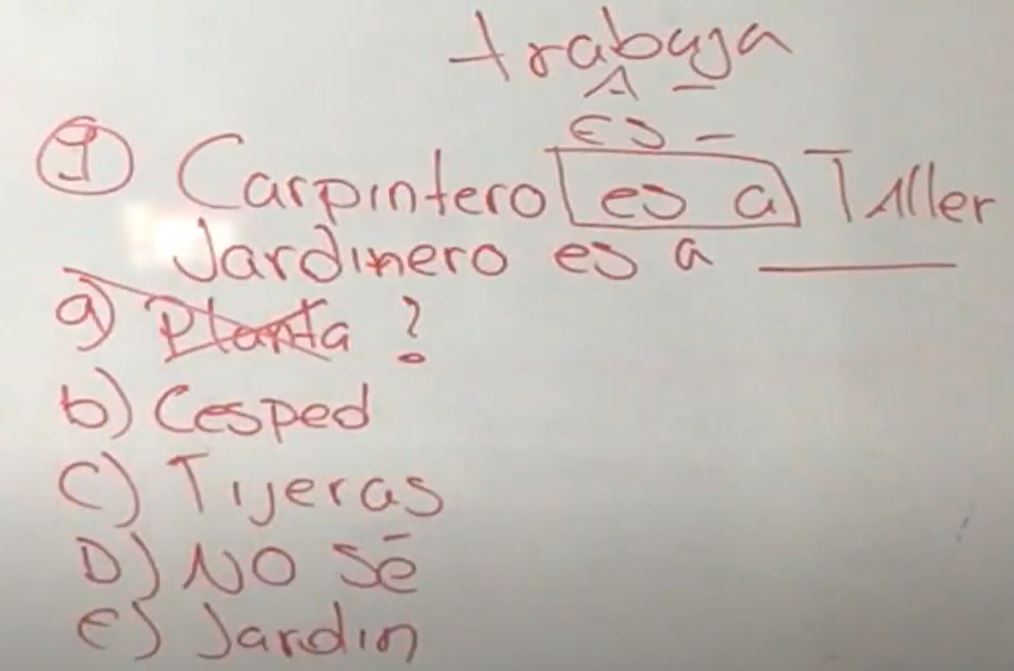 trabaja
A -
es -
1 Carpintero es a Taller
Jardinero es a ______
a) Planta ?
b) Cesped
C) Tijeras
D) NO Sé
E) Jardin